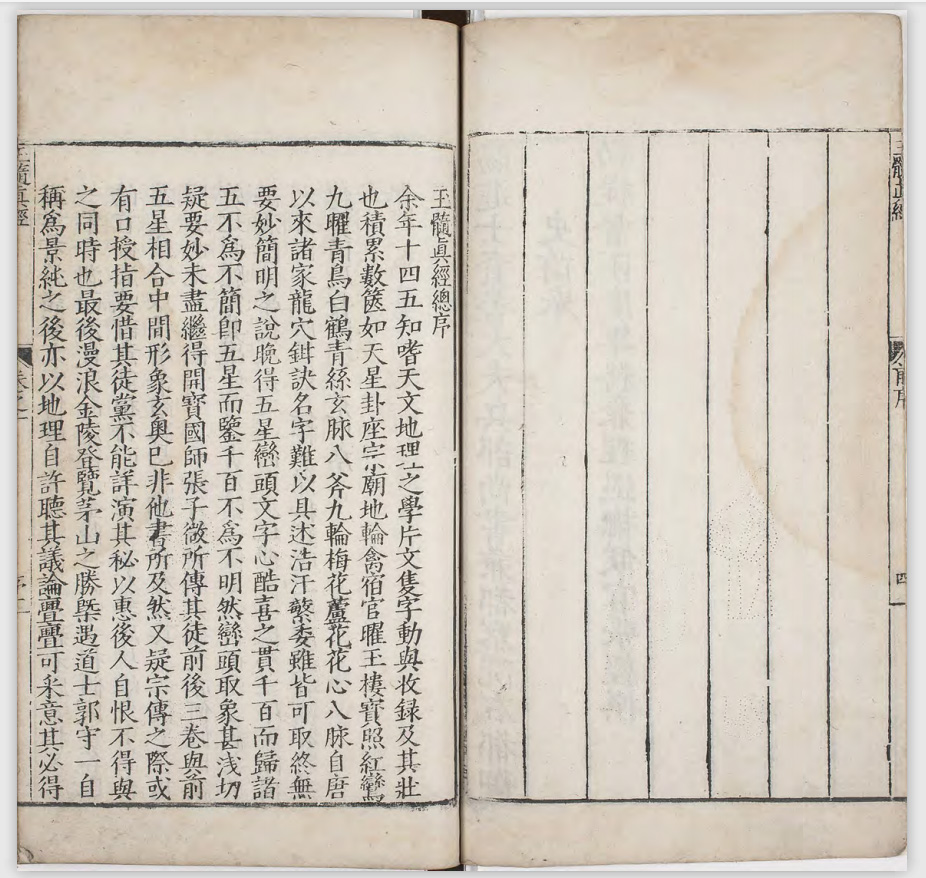 玉髓真經
前序
四
玉髓眞經總序
余年十四五知嗜天文地理之學片文隻字動與收録及其壯
也積累數篋如天星卦座宗廟地輪禽宿官曜玉樓寳照紅鸞
九曜青烏白鶴青絲玄脉八斧九輪梅花蘆花花心八脉自唐
以來諸家龍穴鉗訣名字難以具述浩汗繁委雖皆可取終無
要妙簡明之說晚得五星巒頭文字心酷喜之貫千百而歸諸
五不爲不簡卽五星而鑒千百不爲不明然巒頭取象甚浅切
疑要妙未盡繼得開寳國師張子微所傳其徒前後三卷與前
五星相合中間形象玄奥已非他書所及然又疑宗傳之際或
有口授指要惜其徒黨不能詳演其秘以惠後人自恨不得與
之同時也最後漫浪金陵登覽茅山之勝槩遇道士郭守一自
稱爲景純之後亦以地理自許聽其議論亹亹可采意其必得
玉髓真經
卷之一
序一